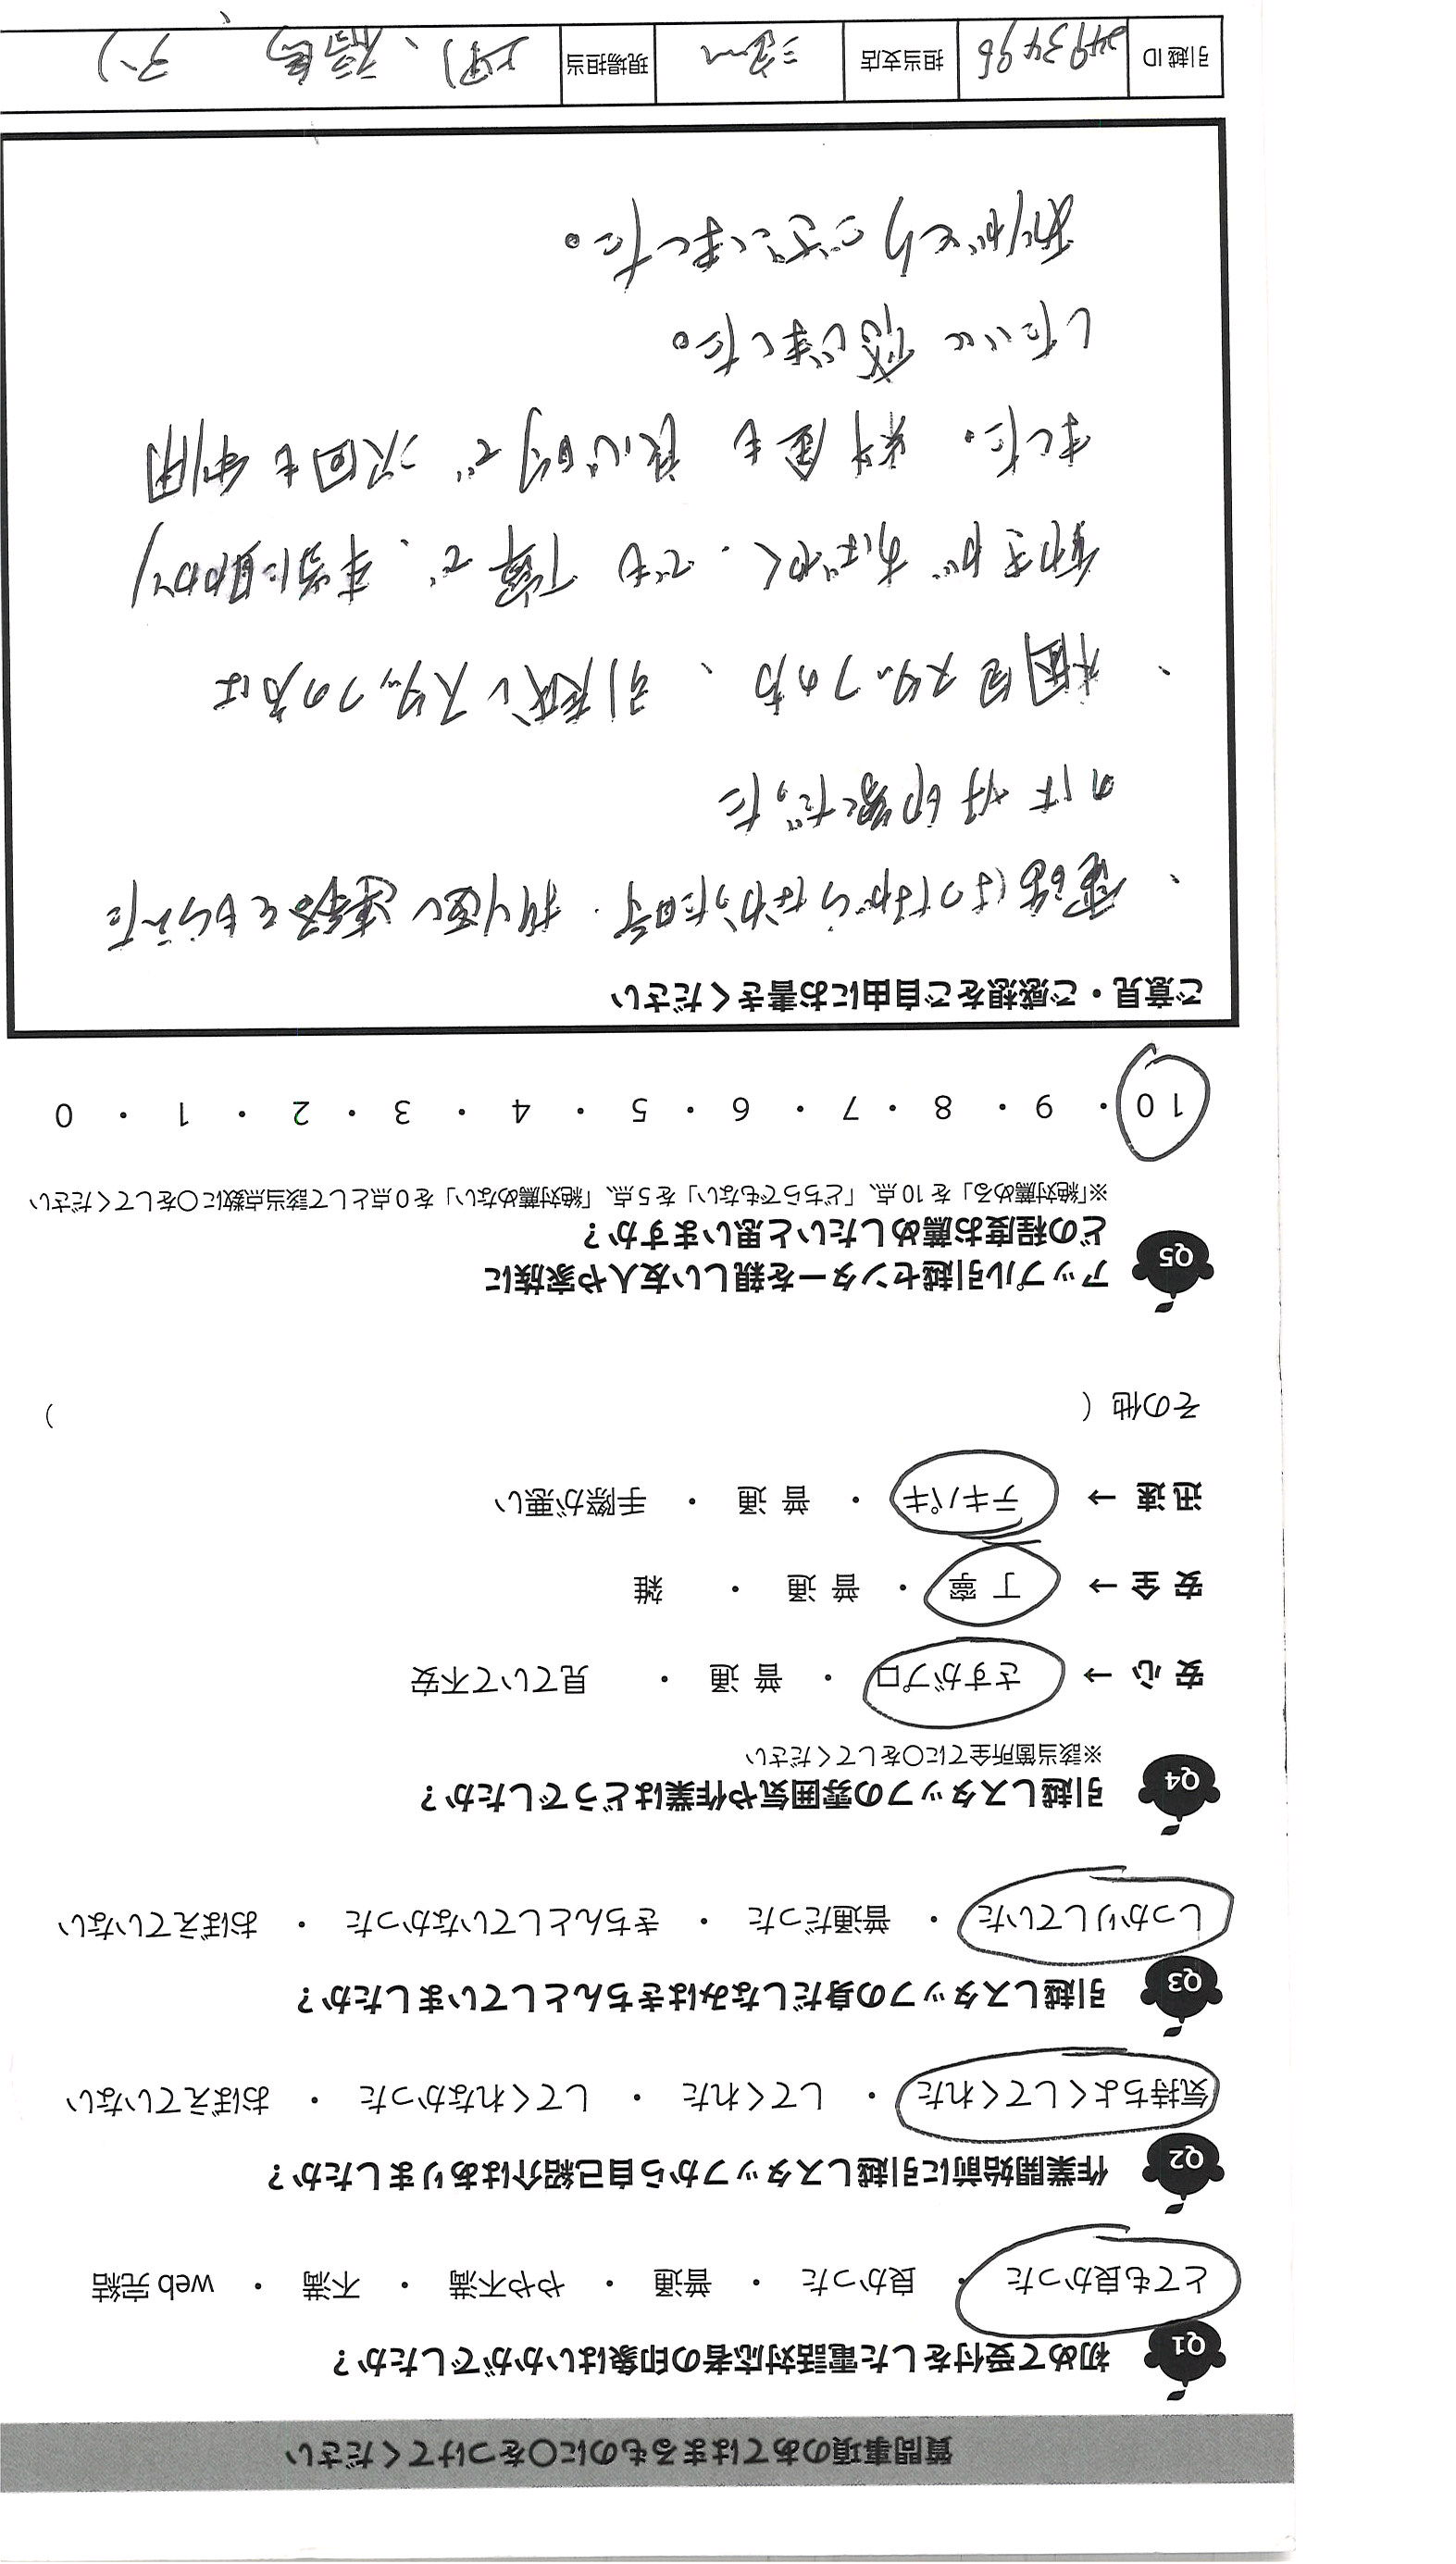 質問事項のあてはまるものに〇をつけてください
Q1 初めて受付をした電話対応者の印象はいかがでしたか？
とても良かった ・ 良かった ・ 普通 ・ やや不満 ・ 不満 ・ web 完結
Q2 作業開始前に引越しスタッフから自己紹介はありましたか？
気持ちよくしてくれた ・ してくれた ・ してくれなかった ・ おぼえていない
Q3 引越しスタッフの身だしなみはきちんとしていましたか？
しっかりしていた ・ 普通だった ・ きちんとしていなかった ・ おぼえていない
Q4 引越しスタッフの雰囲気や作業はどうでしたか？
※該当箇所全てに〇をしてください
安 心 → さすがプロ ・ 普 通 ・ 見ていて不安
安 全 → 丁 寧 ・ 普 通 ・ 雑
迅 速 → テキパキ ・ 普 通 ・ 手際が悪い
その他（ ）
Q5 アップル引越センターを親しい友人や家族に
どの程度お薦めしたいと思いますか？
※「絶対薦める」を 10 点、「どちらでもない」を 5 点、「絶対薦めない」を 0 点として該当点数に〇をしてください
10 ・ 9 ・ 8 ・ 7 ・ 6 ・ 5 ・ 4 ・ 3 ・ 2 ・ 1 ・ 0
ご意見・ご感想をご自由にお書きください
・電話はつながらなかった時、折り返し連絡をもらえた
のは 好印象だった
・梱包スタッフの方、引越しスタッフの方は
動きが すばやく、でも 丁寧で、本当に助かり
ました。料金も 良心的で 次回も 利用
したいと 感じました。
ありがとうございました。
引越 ID 2493496 担当支店 現場担当